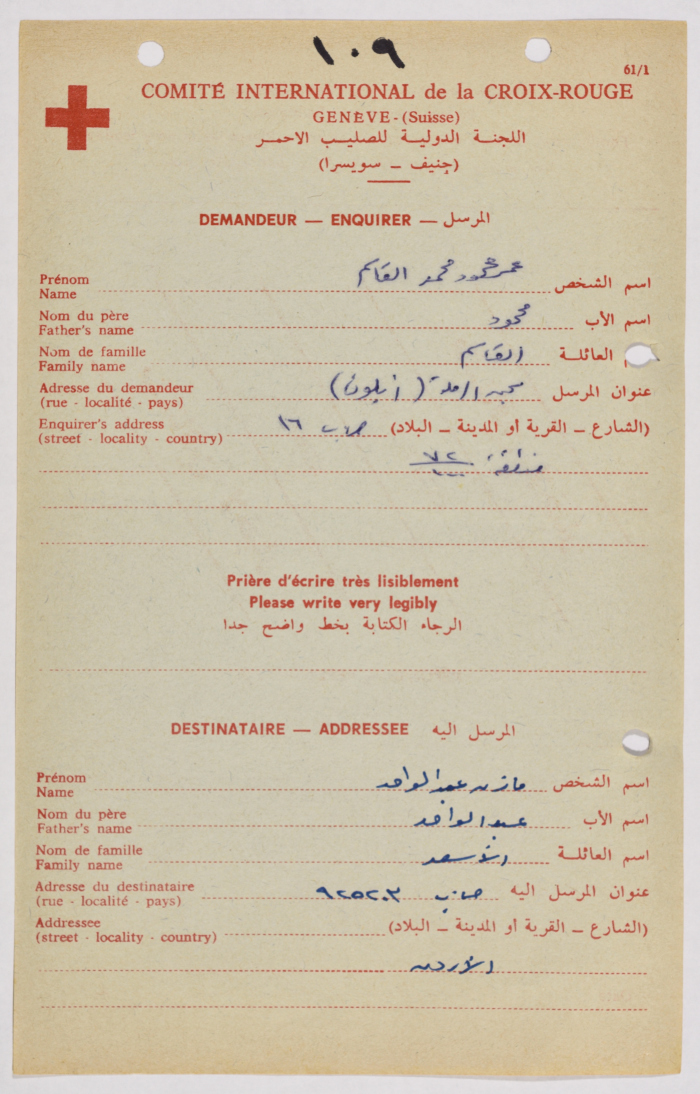 ١٠٩
61/1
COMITÉ INTERNATIONAL de la CROIX-ROUGE
GENÈVE - (Suisse)
اللجنة الدولية للصليب الاحمر
(جنيف – سويسرا)
DEMANDEUR — ENQUIRER — المرسل
Prénom
Name
اسم الشخص عمر محمود محمد القاسم
Nom du père
Father's name
اسم الأب محمود
Nom de famille
Family name
العائلة القاسم
Adresse du demandeur
(rue - localité - pays)
عنوان المرسل سجن الرملة (أيلون)
Enquirer's address
(street - locality - country)
(الشارع – القرية او المدينة – البلاد) ص.ب ١٦
منطقة ٧٢
Prière d'écrire très lisiblement
Please write very legibly
الرجاء الكتابة بخط واضح جدا
DESTINATAIRE — ADDRESSEE المرسل اليه
Prénom
Name
اسم الشخص مازن عبد الواحد
Nom du père
Father's name
اسم الأب عبد الواحد
Nom de famille
Family name
اسم العائلة الأسعد
Adresse du destinataire
(rue - localité - pays)
عنوان المرسل اليه ص.ب ٩٢٥٢٠٣
Addressee
(street - locality - country)
(الشارع – القرية او المدينة – البلاد)
الأردن